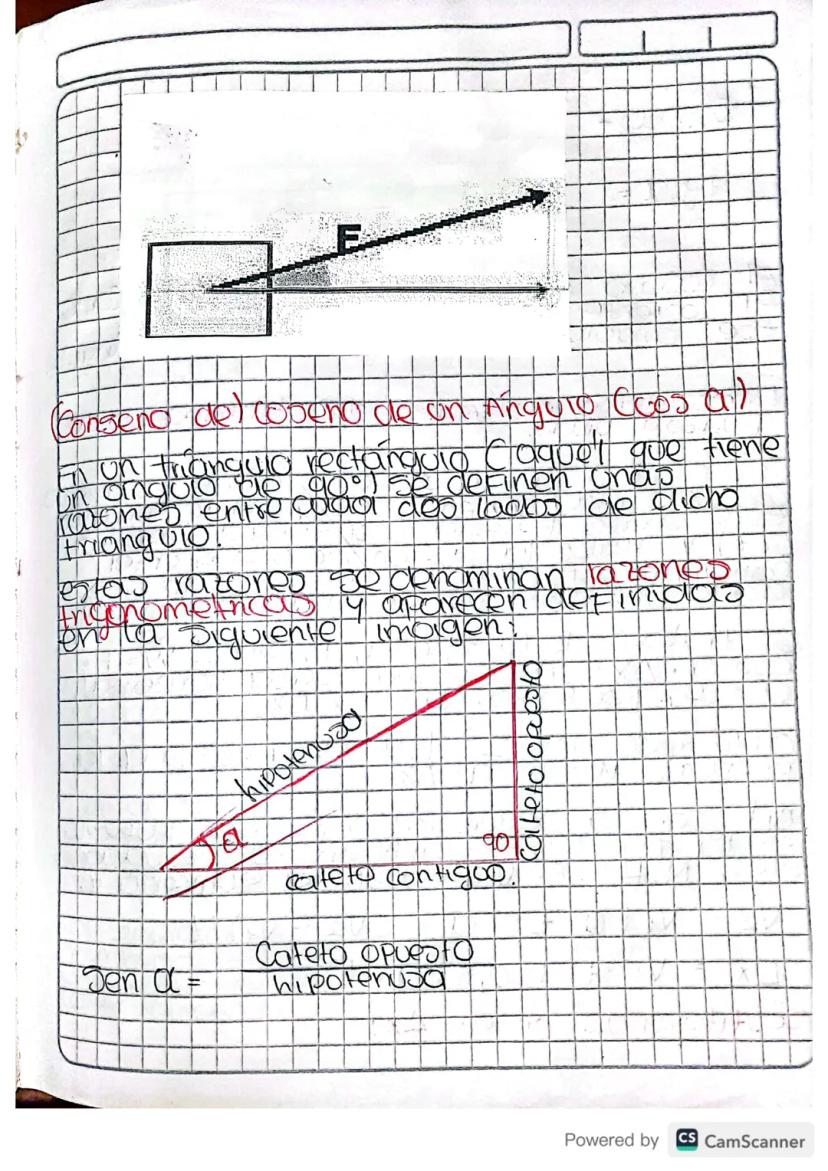 F
(Conseno de) coseno de un Ángulo (cos a)
En un triángulo rectángulo (aquel que tiene
un ángulo de 90°) se definen unas
razones entre cada dos lados de dicho
triangulo.
estas razones se denominan razones
trigonometricas y aparecen definidas
en la siguiente imagen:
hipotenusa
cateto opuesto
a
90
cateto contiguo.
Sen α = Cateto opuesto
hipotenusa
Powered by CS CamScanner